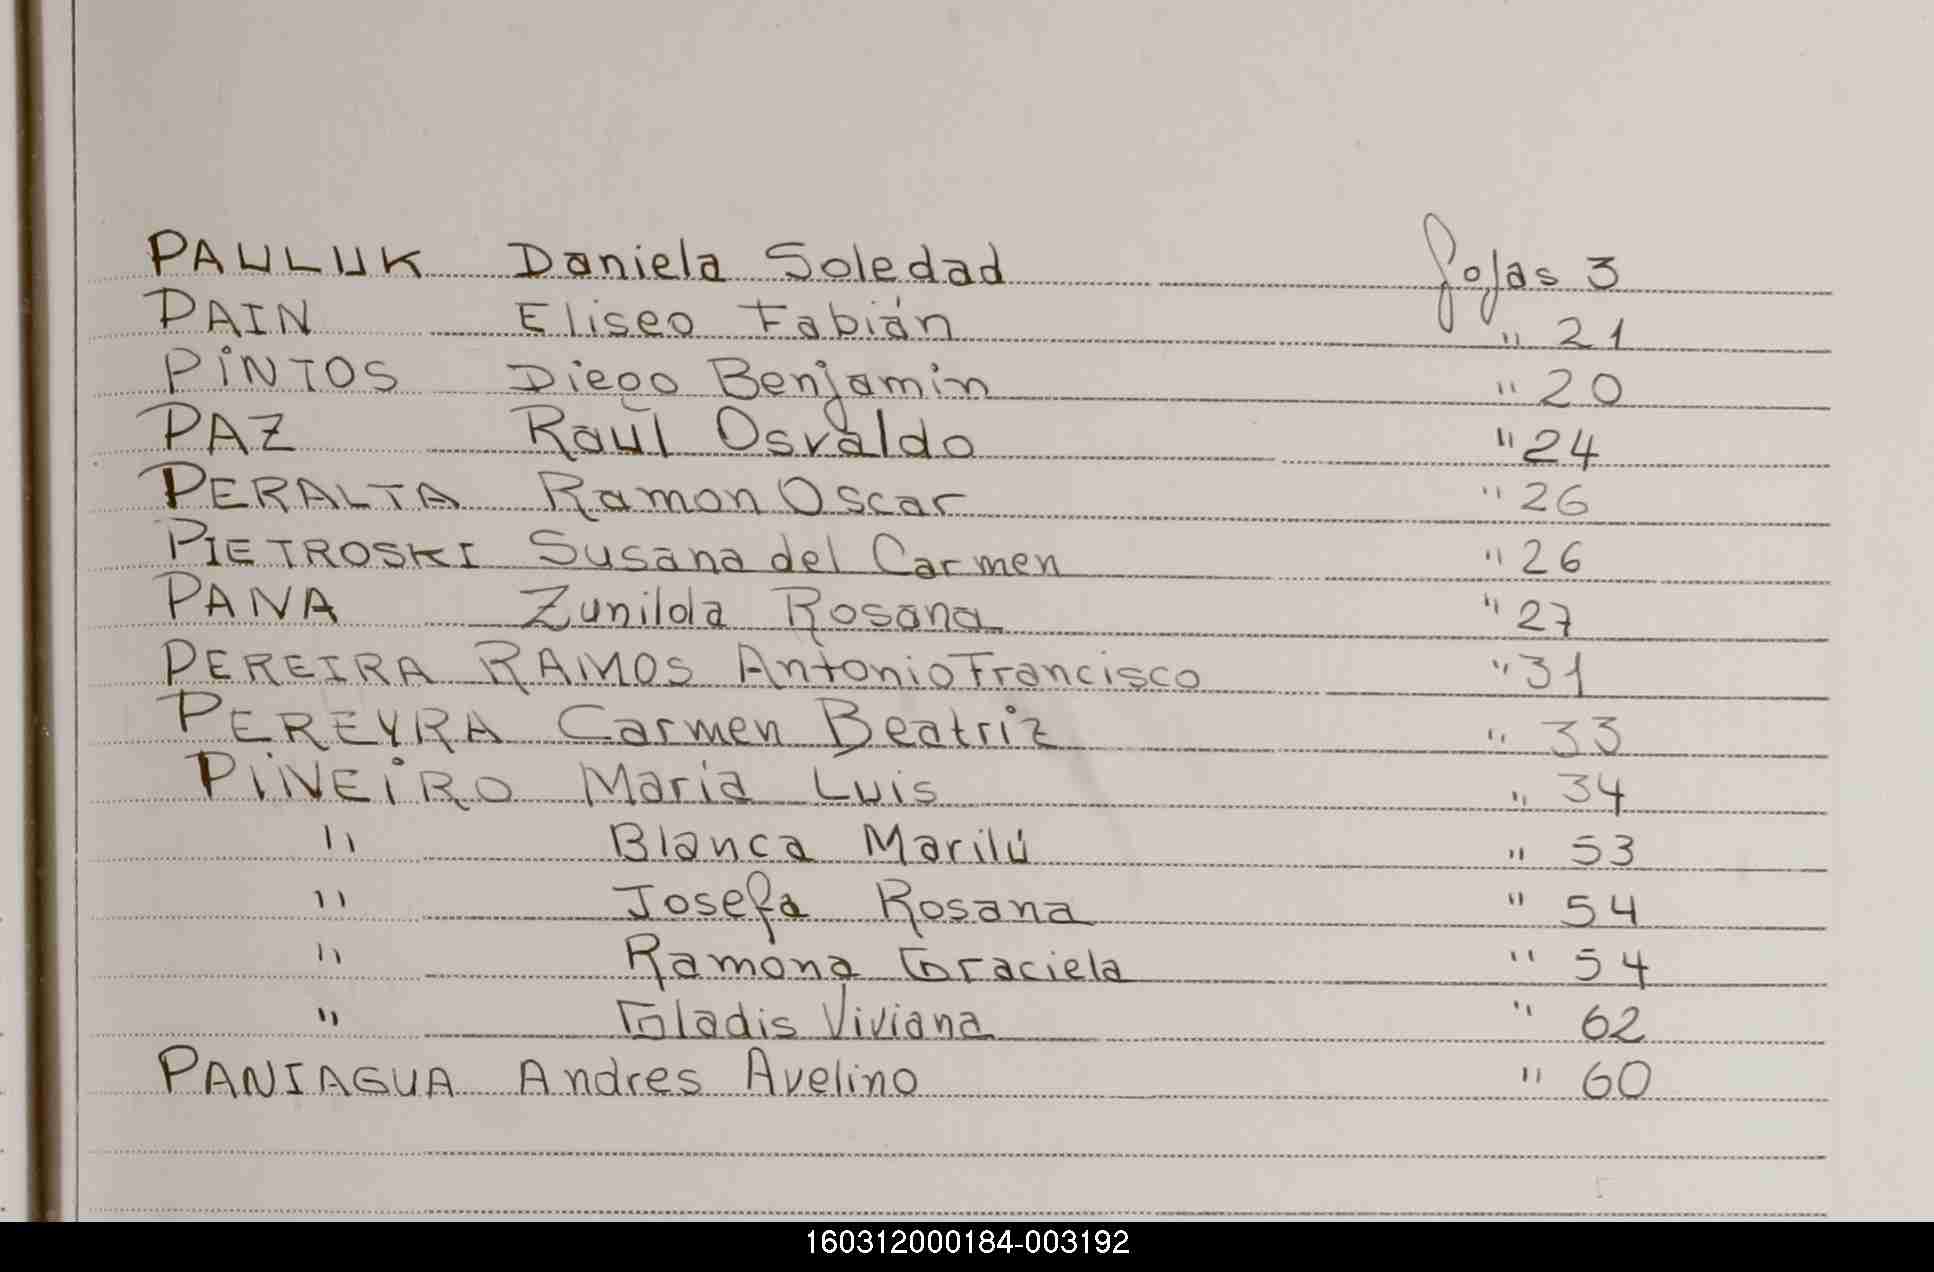 PAULUK Daniela Soledad fojas 3
PAIN Eliseo Fabián " 21
PINTOS Diego Benjamin " 20
PAZ Raúl Osvaldo " 24
PERALTA Ramon Oscar " 26
PIETROSKI Susana del Carmen " 26
PANA Zunilda Rosana " 27
PEREIRA RAMOS Antonio Francisco " 31
PEREYRA Carmen Beatriz " 33
PIÑEIRO Maria Luis " 34
" Blanca Marilú " 53
" Josefa Rosana " 54
" Ramona Graciela " 54
" Gladis Viviana " 62
PANIAGUA Andres Avelino " 60
160312000184-003192